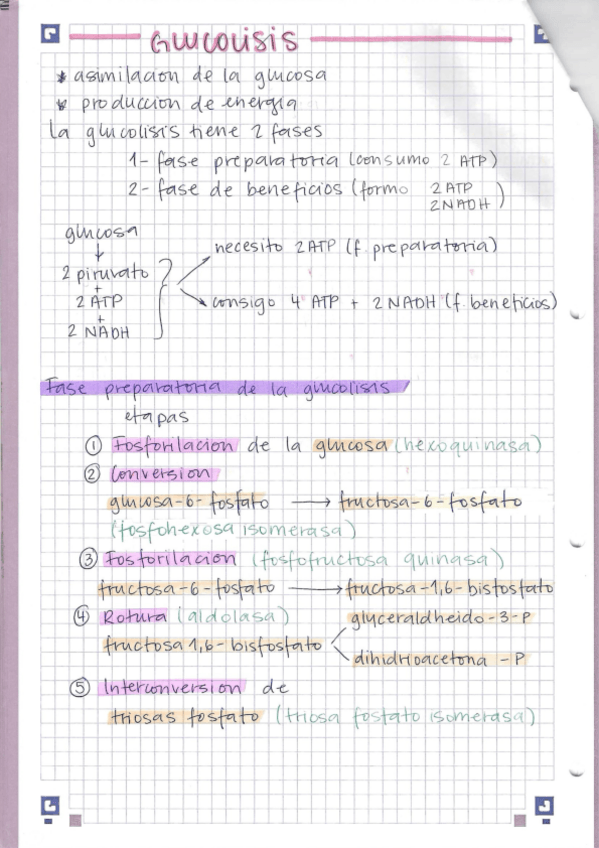 Glucolisis
* asimilacion de la glucosa
* produccion de energia
la glucolisis tiene 2 fases
1- fase preparatoria (consumo 2 ATP)
2- fase de beneficios (formo 2 ATP
2 NADH)
glucosa
↓
2 piruvato
+
2 ATP
+
2 NADH
necesito 2 ATP (f. preparatoria)
consigo 4 ATP + 2 NADH (f. beneficios)
Fase preparatoria de la glucolisis
etapas
① Fosforilacion de la glucosa (hexoquinasa)
② Conversion
glucosa-6-fosfato → fructosa-6-fosfato
(fosfohexosa isomerasa)
③ Fosforilacion (fosfofructosa quinasa)
fructosa-6-fosfato → fructosa-1,6-bisfosfato
④ Rotura (aldolasa) glyceraldheido-3-P
fructosa 1,6-bisfosfato
dihidrioacetona - P
⑤ Interconversion de
triosas fosfato (triosa fosfato isomerasa)